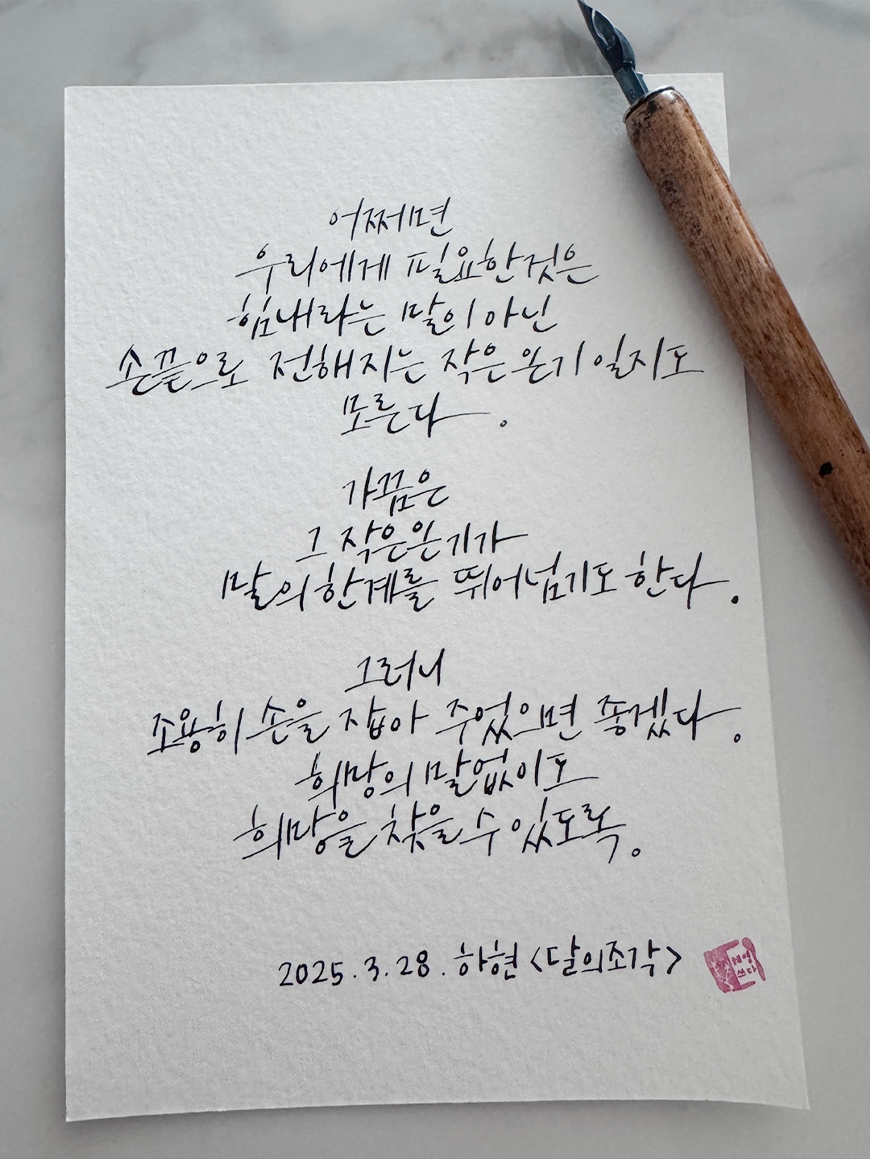 어쩌면
우리에게 필요한것은
힘내라는 말이 아닌
손끝으로 전해지는 작은 온기 일지도
모른다.
가끔은
그 작은온기가
말의 한계를 뛰어넘기도 한다.
그러니
조용히 손을 잡아 주었으면 좋겠다.
희망의 말없이도
희망을 찾을 수 있도록.
2025.3.28. 하현 <달의조각>